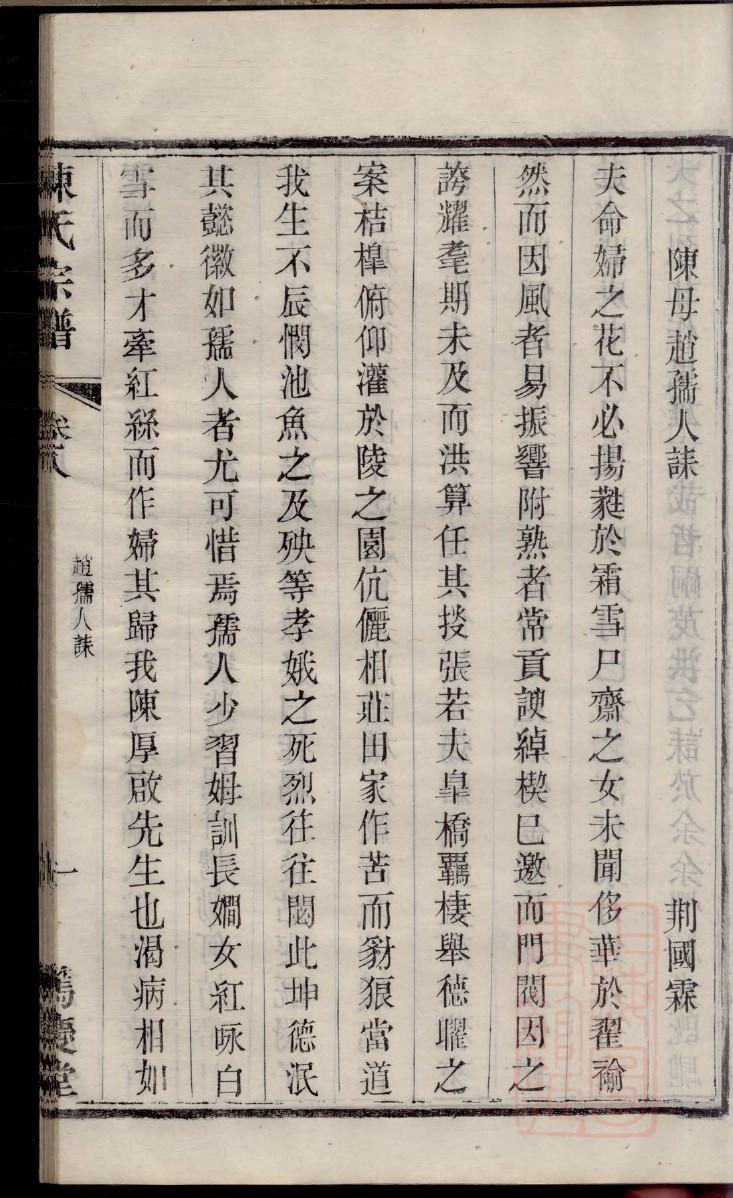 陳母趙孺人誄
荆國霖
夫命婦之花不必揚蕤於霜雪尸齋之女未聞侈華於翟褕
然而因風者易振響附熟者常貢諛綽楔已邀而門閥因之
誇耀耄期未及而洪算任其掞張若夫臯橋羈棲舉德曜之
案桔橰俯仰灌於陵之園伉儷相莊田家作苦而豺狼當道
我生不辰憫池魚之及殃等孝娥之死烈往往閟此坤德泯
其懿徽如孺人者尤可惜焉孺人少習姆訓長嫺女紅咏白
雪而多才牽紅絲而作婦其歸我陳厚啟先生也渴病相如
陳氏宗譜
卷八
趙孺人誄
一
篤慶堂